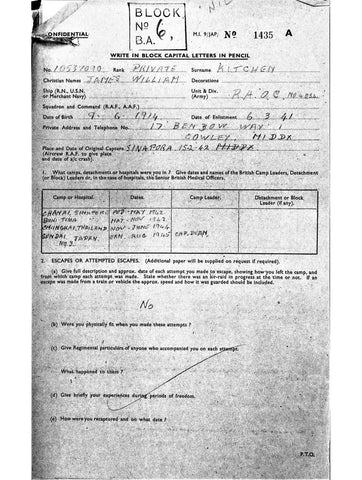 BLOCK
No 6,
B.A.
CONFIDENTIAL
M.I. 9/JAP/ No 1435 A
WRITE IN BLOCK CAPITAL LETTERS IN PENCIL
No. 10537070 Rank PRIVATE Surname KITCHEN
Christian Names JAMES WILLIAM Decorations
Ship (R.N., U.S.N. or Merchant Navy) Unit & Div. (Army) R.A.O.C.
Squadron and Command (R.A.F., A.A.F.)
Date of Birth 9-6-1914 Date of Enlistment 6 3 41
Private Address and Telephone No. 17 BENBOW WAY
COWLEY, MIDDX
Place and Date of Original Capture SINAPORA 15-2-42 MIDDX
(Aircrew R.A.F. to give place
and date of a/c crash).
1. What camps, detachments or hospitals were you in? Give dates and names of the British Camp Leaders, Detachment
(or Block) Leaders or, in the case of hospitals, the Senior British Medical Officers.
Camp or Hospital. Dates. Camp Leader. Detachment or Block Leader (if any).
MAY 1942
MAY - NOV 1942
THAILAND NOV - JUNE 1944
JAPAN JAN. AUG 1945 CAP.
No.
2. ESCAPES OR ATTEMPTED ESCAPES. (Additional paper will be supplied on request if required).
(a) Give full description and approx. date of each attempt you made to escape, showing how you left the camp, and
from which camp each attempt was made. State whether there was an air-raid in progress at the time or not. If an
escape was made from a train or vehicle the approx. speed and how it was guarded should be included.
No
(b) Were you physically fit when you made these attempts?
(c) Give Regimental particulars of anyone who accompanied you on each attempt.
What happened to them?
(d) Give briefly your experiences during periods of freedom.
(e) How were you recaptured and on what date?
P.T.O.